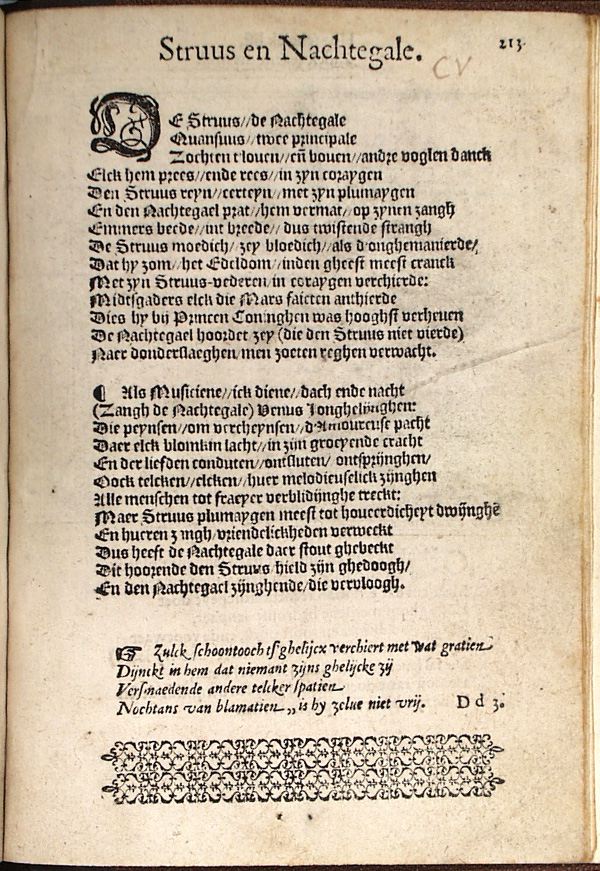 Struus en Nachtegale. 213
CV
DE Struus//de Nachtegale
Quansuus//twee principale
Zochten t'louen//eñ bouen//andre voglen danck
Elck hem prees//ende rees//in zyn coraygen
Den Struus reyn//certeyn//met zyn plumaygen
En den Nachtegael prat//hem vermat//op zynen zangh
Emmers beede//uut breede//dus twistende strangh
De Struus moedich/ zey bloedich//als d'onghemanierde/
Dat hy zom//het Edeldom//inden gheest meest cranck
Met zyn Struus-vederen/in coraygen verchierde:
Midtsgaders elck die Mars faicten anthierde
Dies hy bij Princen Coninghen was hooghst verheuen
De Nachtegael hoordet zey (die den Struus niet vierde)
Naer donderslaeghen/men zoeten reghen verwacht.
¶ Als Musiciene//ick diene//dach ende nacht
(Zangh de Nachtegale) Venus Jonghelijnghen:
Die peynsen//om vercheynsen//d'Amoureuse pacht
Daer elck blomkin lacht//in zijn groeyende cracht
En der liefden conduten//ontsluten/ ontsprijnghen/
Oock telcken//elcken//huer melodieuselick zijnghen
Alle menschen tot fraeyer verblijdijnghe trect:
Maer Struus plumaygen meest tot houeerdicheyt dwijnghẽ
En hueren zangh/vriendelickheden verweckt
Dus heeft de Nachtegale daer stout ghebeckt
Dit hoorende den Struus hield zijn ghedoogh/
En den Nachtegael zijnghende/die vervloogh.
☞ Zulck schoontooch ts'ghelijcx verchiert met wat gratien
Dijnckt in hem dat niemant zijns ghelijcke zij
Versmaedende andere telcker spatien
Nochtans van blamatien,, is hy zelue niet vrij. D d 3.